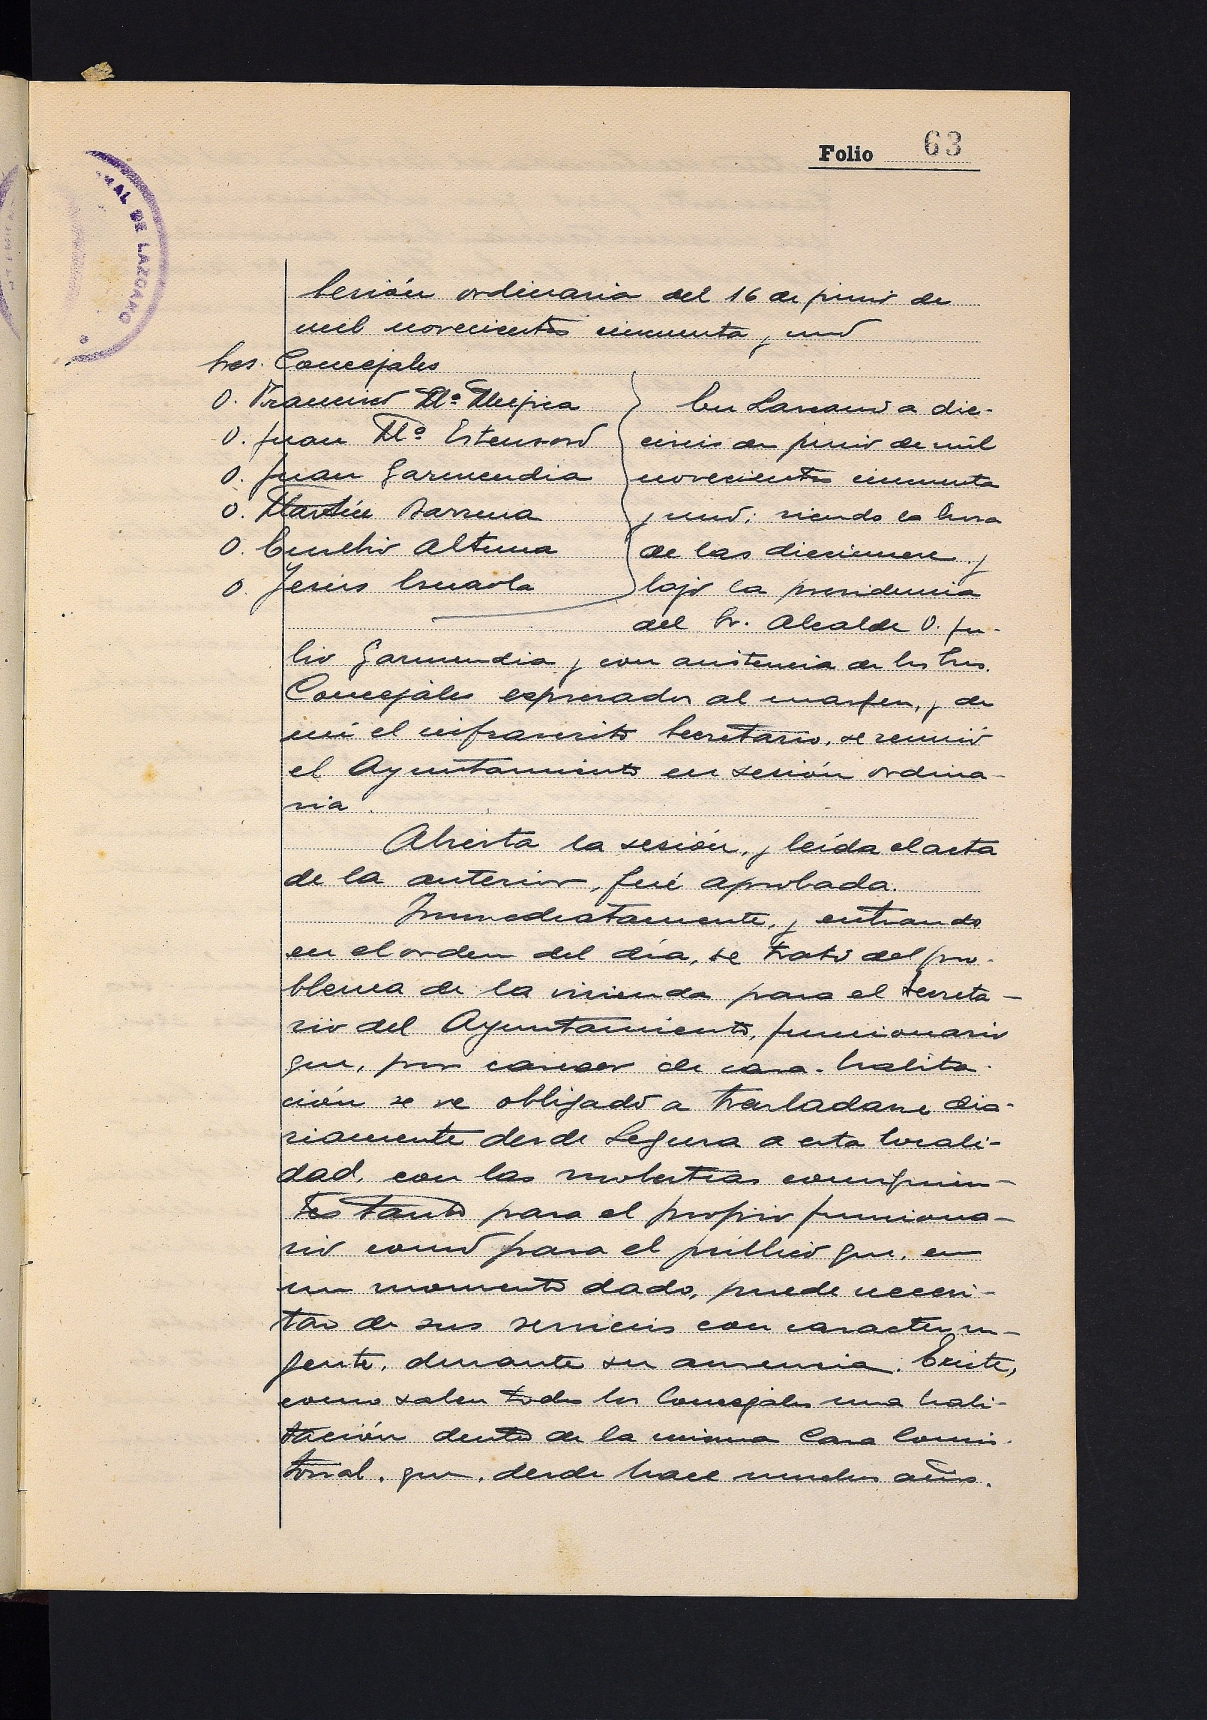 Folio 63
MAL DE LAZCANO
Sesión ordinaria del 16 de junio de
mil novecientos cincuenta y uno
Sres. Concejales
D. Francisco Mª Mujica
D. Juan Mº Estensoro
D. Juan Garmendia
D. Martín Barrena
D. Emilio Altuna
D. Jesús Esnaola
En Lazcano a die-
ciseis de junio de mil
novecientos cincuenta
y uno; siendo la hora
de las diecinueve y
bajo la presidencia
del Sr. Alcalde D. Ju-
lio Garmendia y con asistencia de los Sres.
Concejales expresados al margen, y de
mí el infrascrito Secretario, se reunió
el Ayuntamiento en sesión ordina-
ria.
Abierta la sesión, y leída el acta
de la anterior, fué aprobada.
Inmediatamente, y entrando
en el orden del día, se trató del pro-
blema de la vivienda para el Secreta-
rio del Ayuntamiento, funcionario
que, por carecer de casa-habita-
ción se ve obligado a trasladarse dia-
riamente desde Segura a esta locali-
dad, con las molestias consiguien-
tes tanto para el propio funciona-
rio como para el público que, en
un momento dado, puede necesi-
tar de sus servicios con caracter ur-
gente, durante su ausencia. Existe,
como saben todos los Concejales una habi-
tación dentro de la misma Casa Consis-
torial, que, desde hace muchos años,